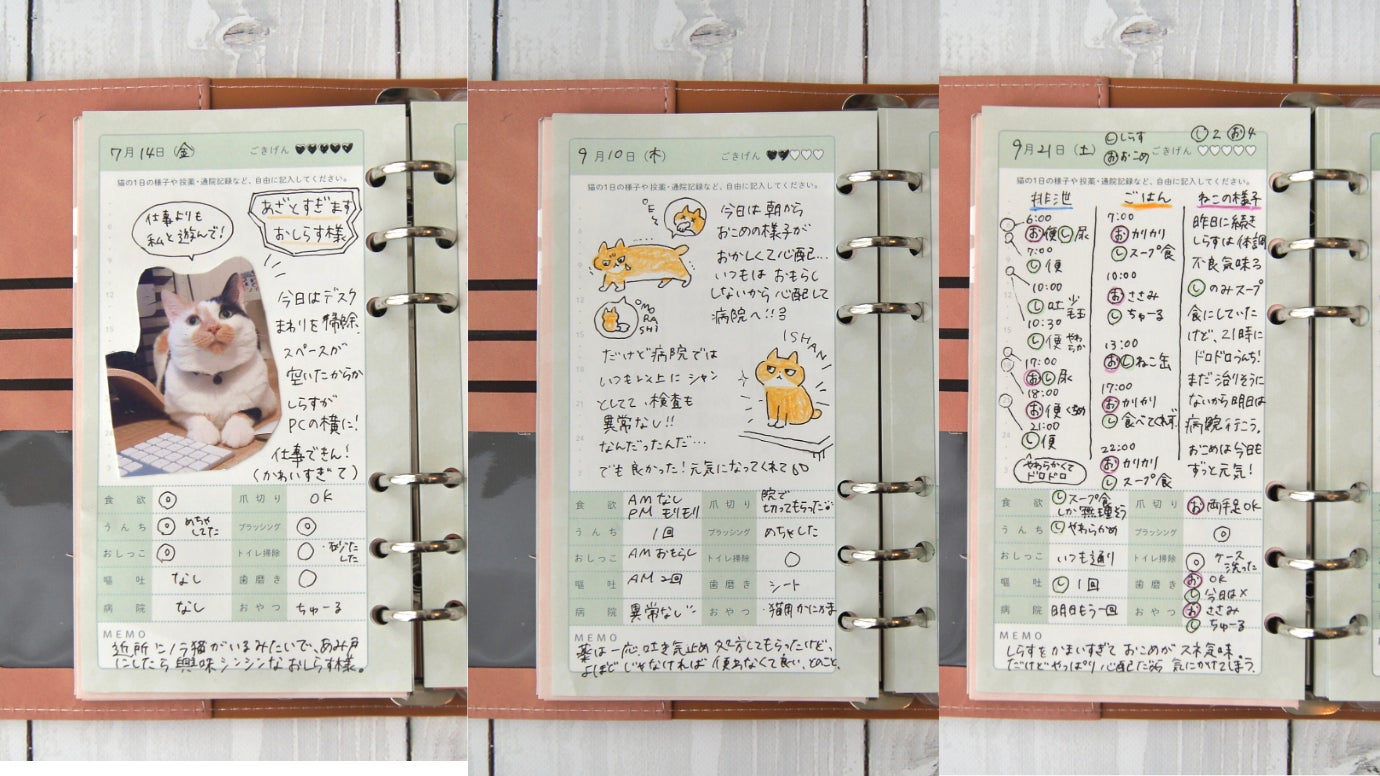 7月14日(金)
ごきげん
猫の1日の様子や投薬・通院記録など、自由に記入してください。
仕事よりも
私と遊んで!
あざとすぎます
おしらす様
今日はデスク
まわりを掃除、
スペースが
空いたからか
しらすが
PCの横に!
仕事できん!
(かわいすぎて)
食欲 ◎ 爪切り OK
うんち ◎ めちゃしてた ブラッシング ◎
おしっこ ◎ トイレ掃除 ○ 砂たした
嘔吐 なし 歯磨き ○
病院 なし おやつ ちゅーる
MEMO
近所にノラ猫がいるみたいで、あみ戸
にしたら興味シンシンなおしらす様。
9月10日(木)
ごきげん
猫の1日の様子や投薬・通院記録など、自由に記入してください。
今日は朝から
おこめの様子が
おかしくて心配…
いつもは おもらし
しないから心配して
病院へ!!
OMO
RA
SHI
ISHAN
だけど病院では
いつも以上に シャン
としてて、検査も
異常なし!!
なんだったんだ…
でも良かった!元気になってくれて
食欲 AM なし 爪切り 院で
PM モリモリ 切ってもらったな
うんち 1回 ブラッシング めちゃした
おしっこ AM おもらし トイレ掃除 ○
嘔吐 AM 2回 歯磨き シート
病院 異常なし おやつ 猫用かにかま
MEMO
薬は一応、吐き気止め処方してもらったけど、
よほどじゃなければ使わなくて良い、とのこと。
9月21日(土)
し しらす
お おこめ
し2 お4
ごきげん
猫の1日の様子や投薬・通院記録など、自由に記入してください。
排泄
6:00
お便 し尿
7:00
し便
10:00
し吐 少 毛玉
10:30
し便 やわらか
17:00
おし尿
18:00
お便 くさめ
21:00
し便
やわらかくて
ドロドロ
ごはん
7:00
おカリカリ
しスープ食
10:00
おささみ
しちゅーる
13:00
おしねこ缶
17:00
おカリカリ
し食べてくれず
22:00
おカリカリ
しスープ食
ねこの様子
昨日に続き
しらすは体調
不良気味
しのみスープ
食にしていた
けど、21時に
ドロドロうんち!
まだ治りそうに
ないから明日は
病院行こう。
おこめは今日も
ずっと元気!
食欲 しスープ食 爪切り お両手足OK
しか無理そう
うんち しやわらかめ ブラッシング ◎
おしっこ いつも通り トイレ掃除 ◎ケース洗った
嘔吐 し1回 歯磨き おOK
し今日は×
病院 明日もう一回 おやつ おささみ
しちゅーる
MEMO
しらすをかまいすぎて おこめがスネ気味。
だけどやっぱり心配だから 気にかけてしまう。